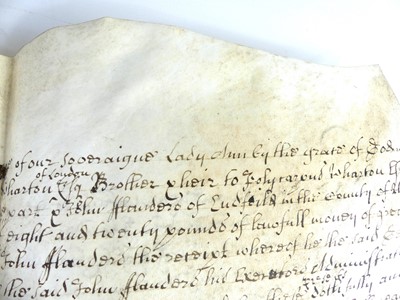 of our Soveraigne Lady Ann by the grace of God
of London
Wharton Esq Brother & heir to Polycarpus Wharton Es
part & John Flanders of in the County of
eight and twenty pounds of lawfull money of great
John Flanders the receipt whereof he the said
the said John Flanders his Executors Administrat
fully and